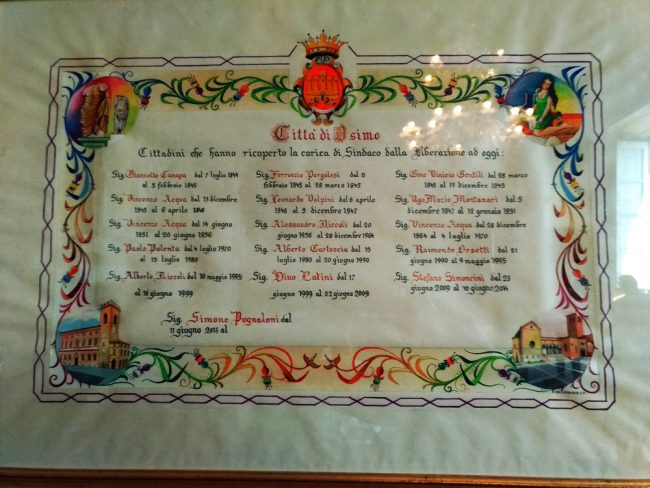 Città di Osimo
Cittadini che hanno ricoperto la carica di Sindaco dalla Liberazione ad oggi:
Sig. Giannetto Canapa dal 7 luglio 1944
al 5 febbraio 1945
Sig. Ferruccio Pergolesi dal 6
febbraio 1945 al 28 marzo 1945
Sig. Gino Vinicio Gentili dal 28 marzo
1945 al 13 dicembre 1945
Sig. Vincenzo Acqua dal 13 dicembre
1945 al 6 aprile 1946
Sig. Leonardo Volpini dal 6 aprile
1946 al 5 dicembre 1947
Sig. Ugo Muzio Montanari dal 5
dicembre 1947 al 12 gennaio 1951
Sig. Vincenzo Acqua dal 14 giugno
1951 al 20 giugno 1956
Sig. Alessandro Niccoli dal 20
giugno 1956 al 28 dicembre 1964
Sig. Vincenzo Acqua dal 28 dicembre
1964 al 4 luglio 1970
Sig. Paolo Polenta dal 4 luglio 1970
al 15 luglio 1980
Sig. Alberto Cartuccia dal 15
luglio 1980 al 20 giugno 1990
Sig. Raimondo Orsetti dal 21
giugno 1990 al 9 maggio 1995
Sig. Alberto Niccoli dal 10 maggio 1995
al 16 giugno 1999
Sig. Dino Latini dal 17
giugno 1999 al 22 giugno 2009
Sig. Stefano Simoncini dal 23
giugno 2009 al 10 giugno 2014
Sig. Simone Pugnaloni dal
11 giugno 2014 al